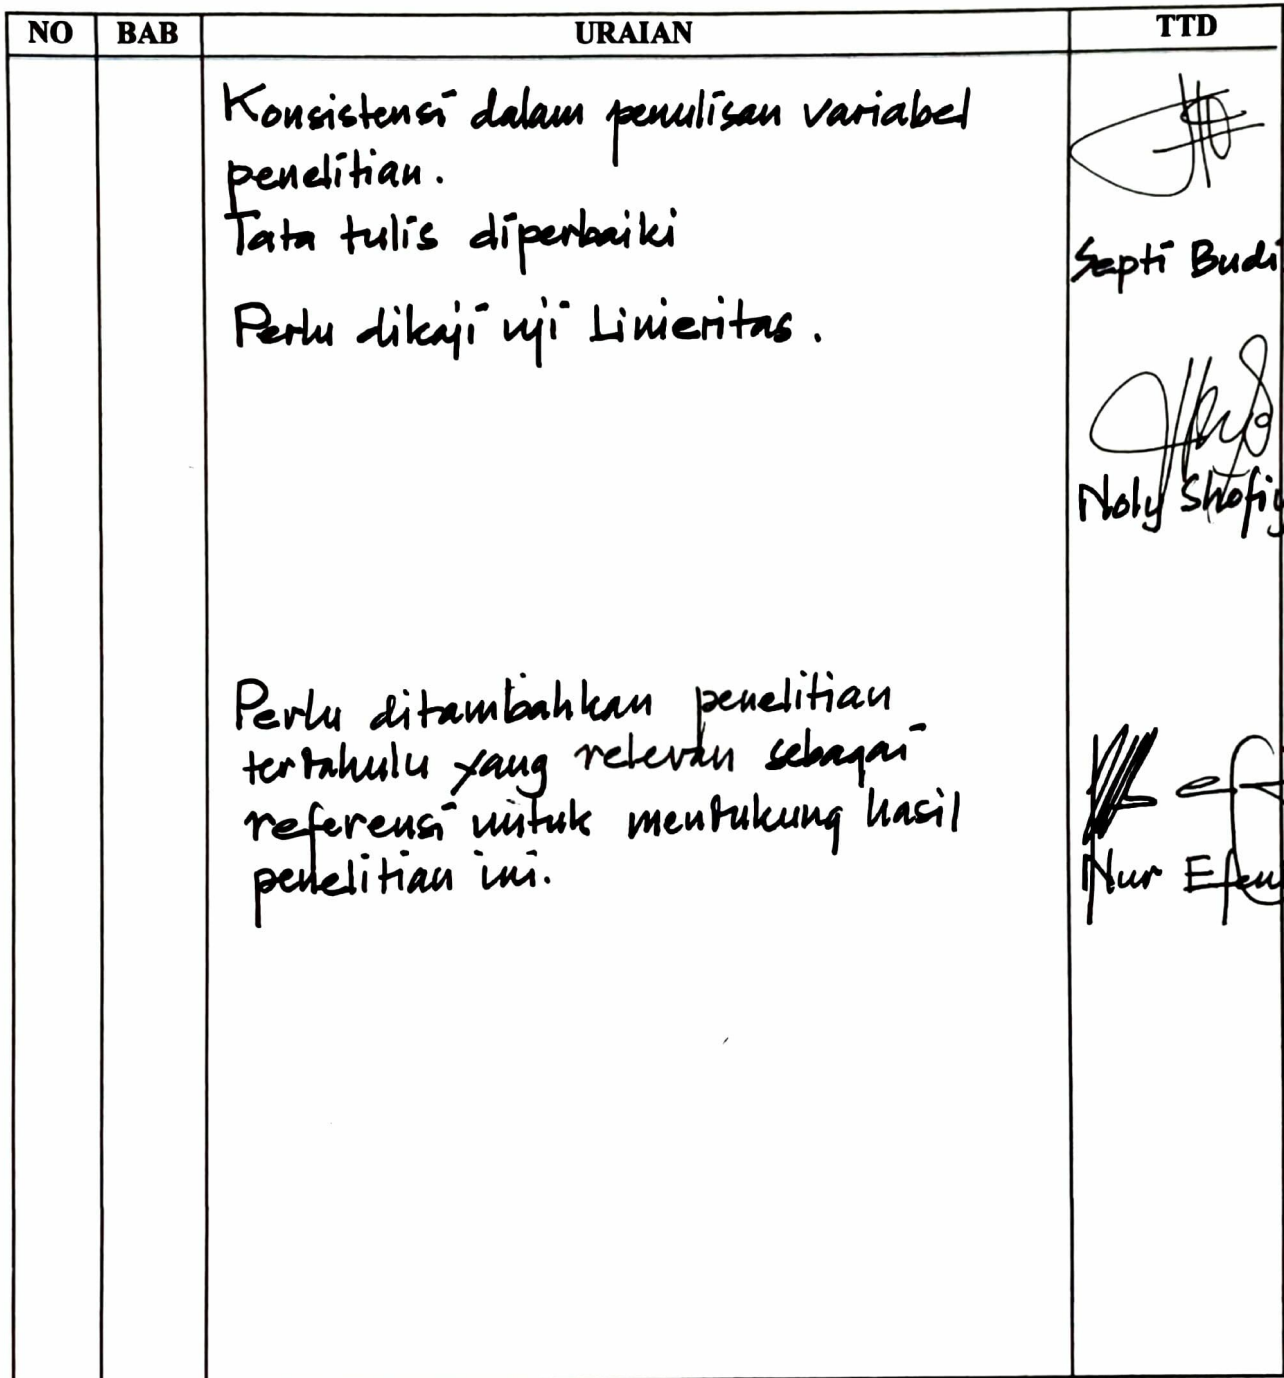 NO BAB URAIAN TTD
Konsistensi dalam penulisan variabel
penelitian.
Tata tulis diperbaiki
Septi Budi
Perlu dikaji uji Linieritas.
Noly Shofiy
Perlu ditambahkan penelitian
tertahulu yang relevan sebagai
referensi untuk mentukung hasil
penelitian ini.
Nur Efen